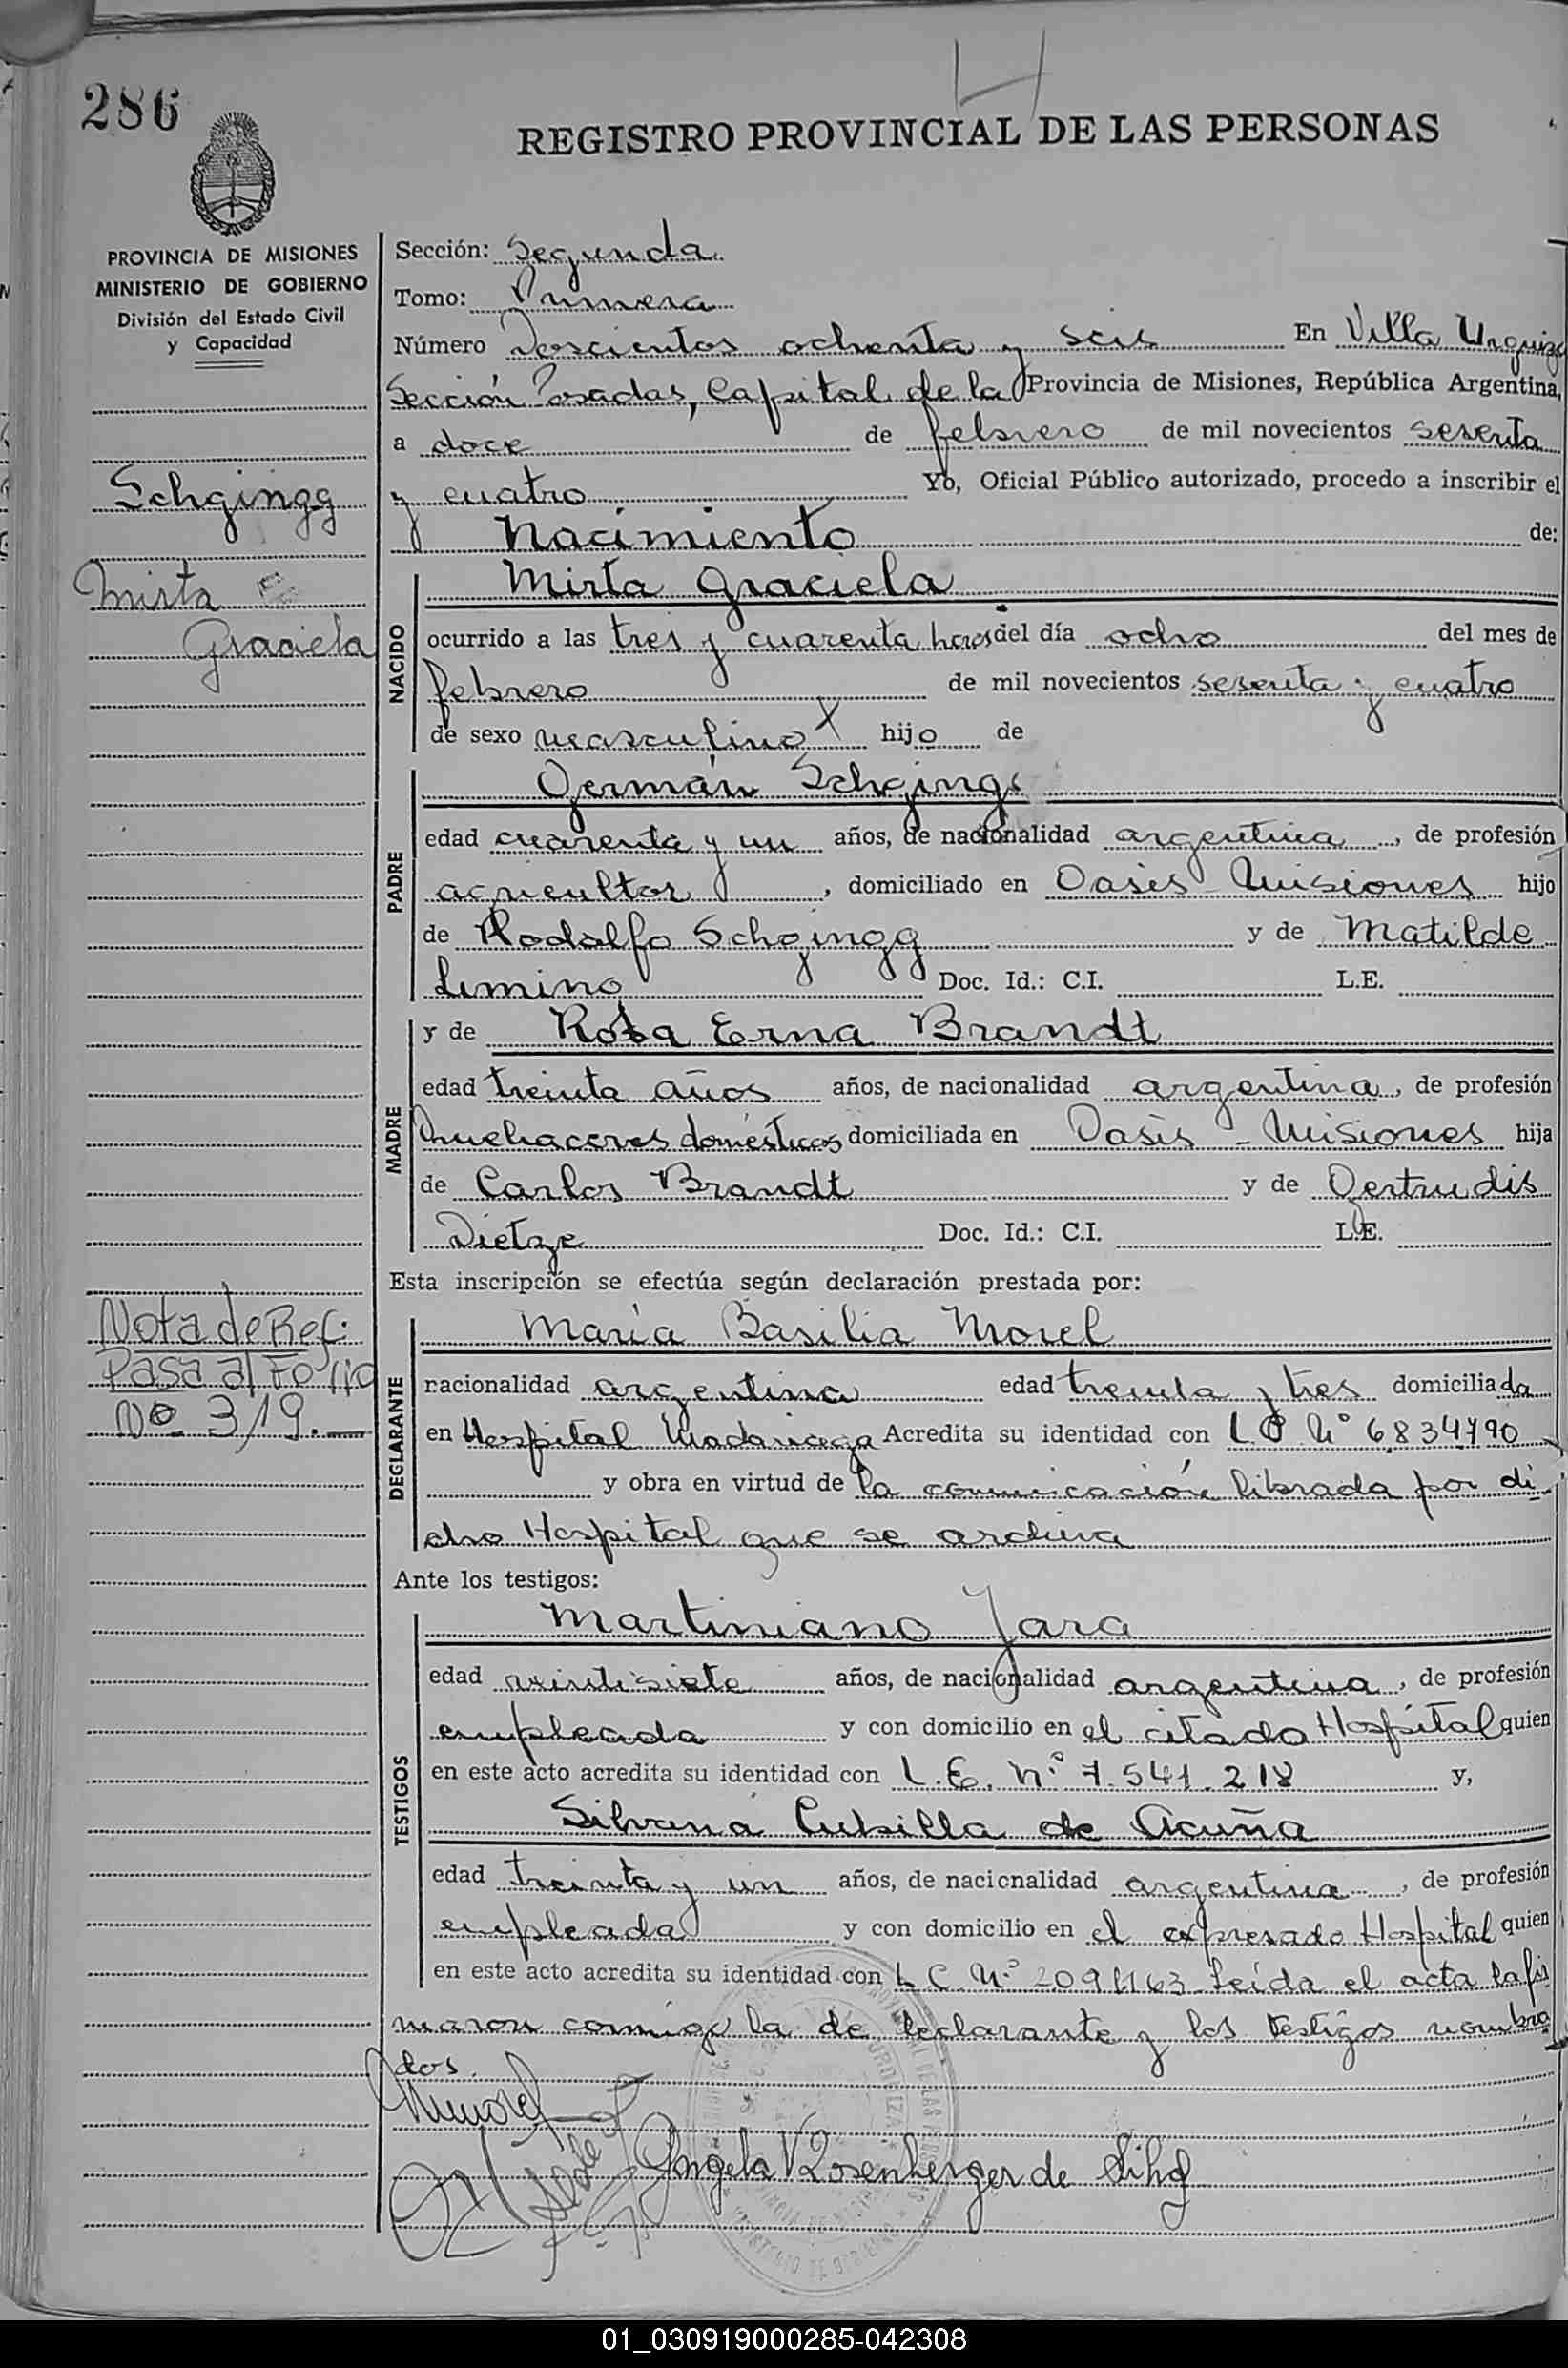 286
REGISTRO PROVINCIAL DE LAS PERSONAS
PROVINCIA DE MISIONES
MINISTERIO DE GOBIERNO
División del Estado Civil
y Capacidad
Schgingg
Mirta
Graciela
Nota de Ref:
Pasa al Folio
Nº 319.—
Sección: Segunda
Tomo: Primera
Número Doscientos ochenta y seis En Villa Urquiza
Sección Posadas, Capital de la Provincia de Misiones, República Argentina,
a doce de febrero de mil novecientos sesenta
y cuatro Yo, Oficial Público autorizado, procedo a inscribir el
Nacimiento de:
NACIDO
Mirta Graciela
ocurrido a las tres y cuarenta horas del día ocho del mes de
febrero de mil novecientos sesenta y cuatro
de sexo masculino X hijo de
PADRE
Germán Schgingg
edad cuarenta y un años, de nacionalidad argentina, de profesión
agricultor, domiciliado en Oasis - Misiones hijo
de Rodolfo Schgingg y de Matilde
Limino Doc. Id.: C.I. L.E.
MADRE
y de Rosa Erna Brandt
edad treinta años años, de nacionalidad argentina, de profesión
quehaceres domésticos domiciliada en Oasis - Misiones hija
de Carlos Brandt y de Gertrudis
Dietze Doc. Id.: C.I. L.E.
Esta inscripción se efectúa según declaración prestada por:
DEGLARANTE
María Basilia Morel
racionalidad argentina edad treinta y tres domiciliada
en Hospital Madariaga Acredita su identidad con L C Nº 6834790
y obra en virtud de la comunicación librada por di
cho Hospital que se archiva
Ante los testigos:
TESTIGOS
Martiniano Jara
edad veintisiete años, de nacionalidad argentina, de profesión
empleada y con domicilio en el citado Hospital quien
en este acto acredita su identidad con L.E. Nº 7.541.218 y,
Silvana Cubilla de Acuña
edad treinta y un años, de nacionalidad argentina, de profesión
empleada y con domicilio en el expresado Hospital quien
en este acto acredita su identidad con L C Nº 2091163 Leída el acta la fir
maron conmigo la de declarante y los testigos nombra
dos.
MMorel
Angela V Rosenberger de Sihg
01_030919000285-042308